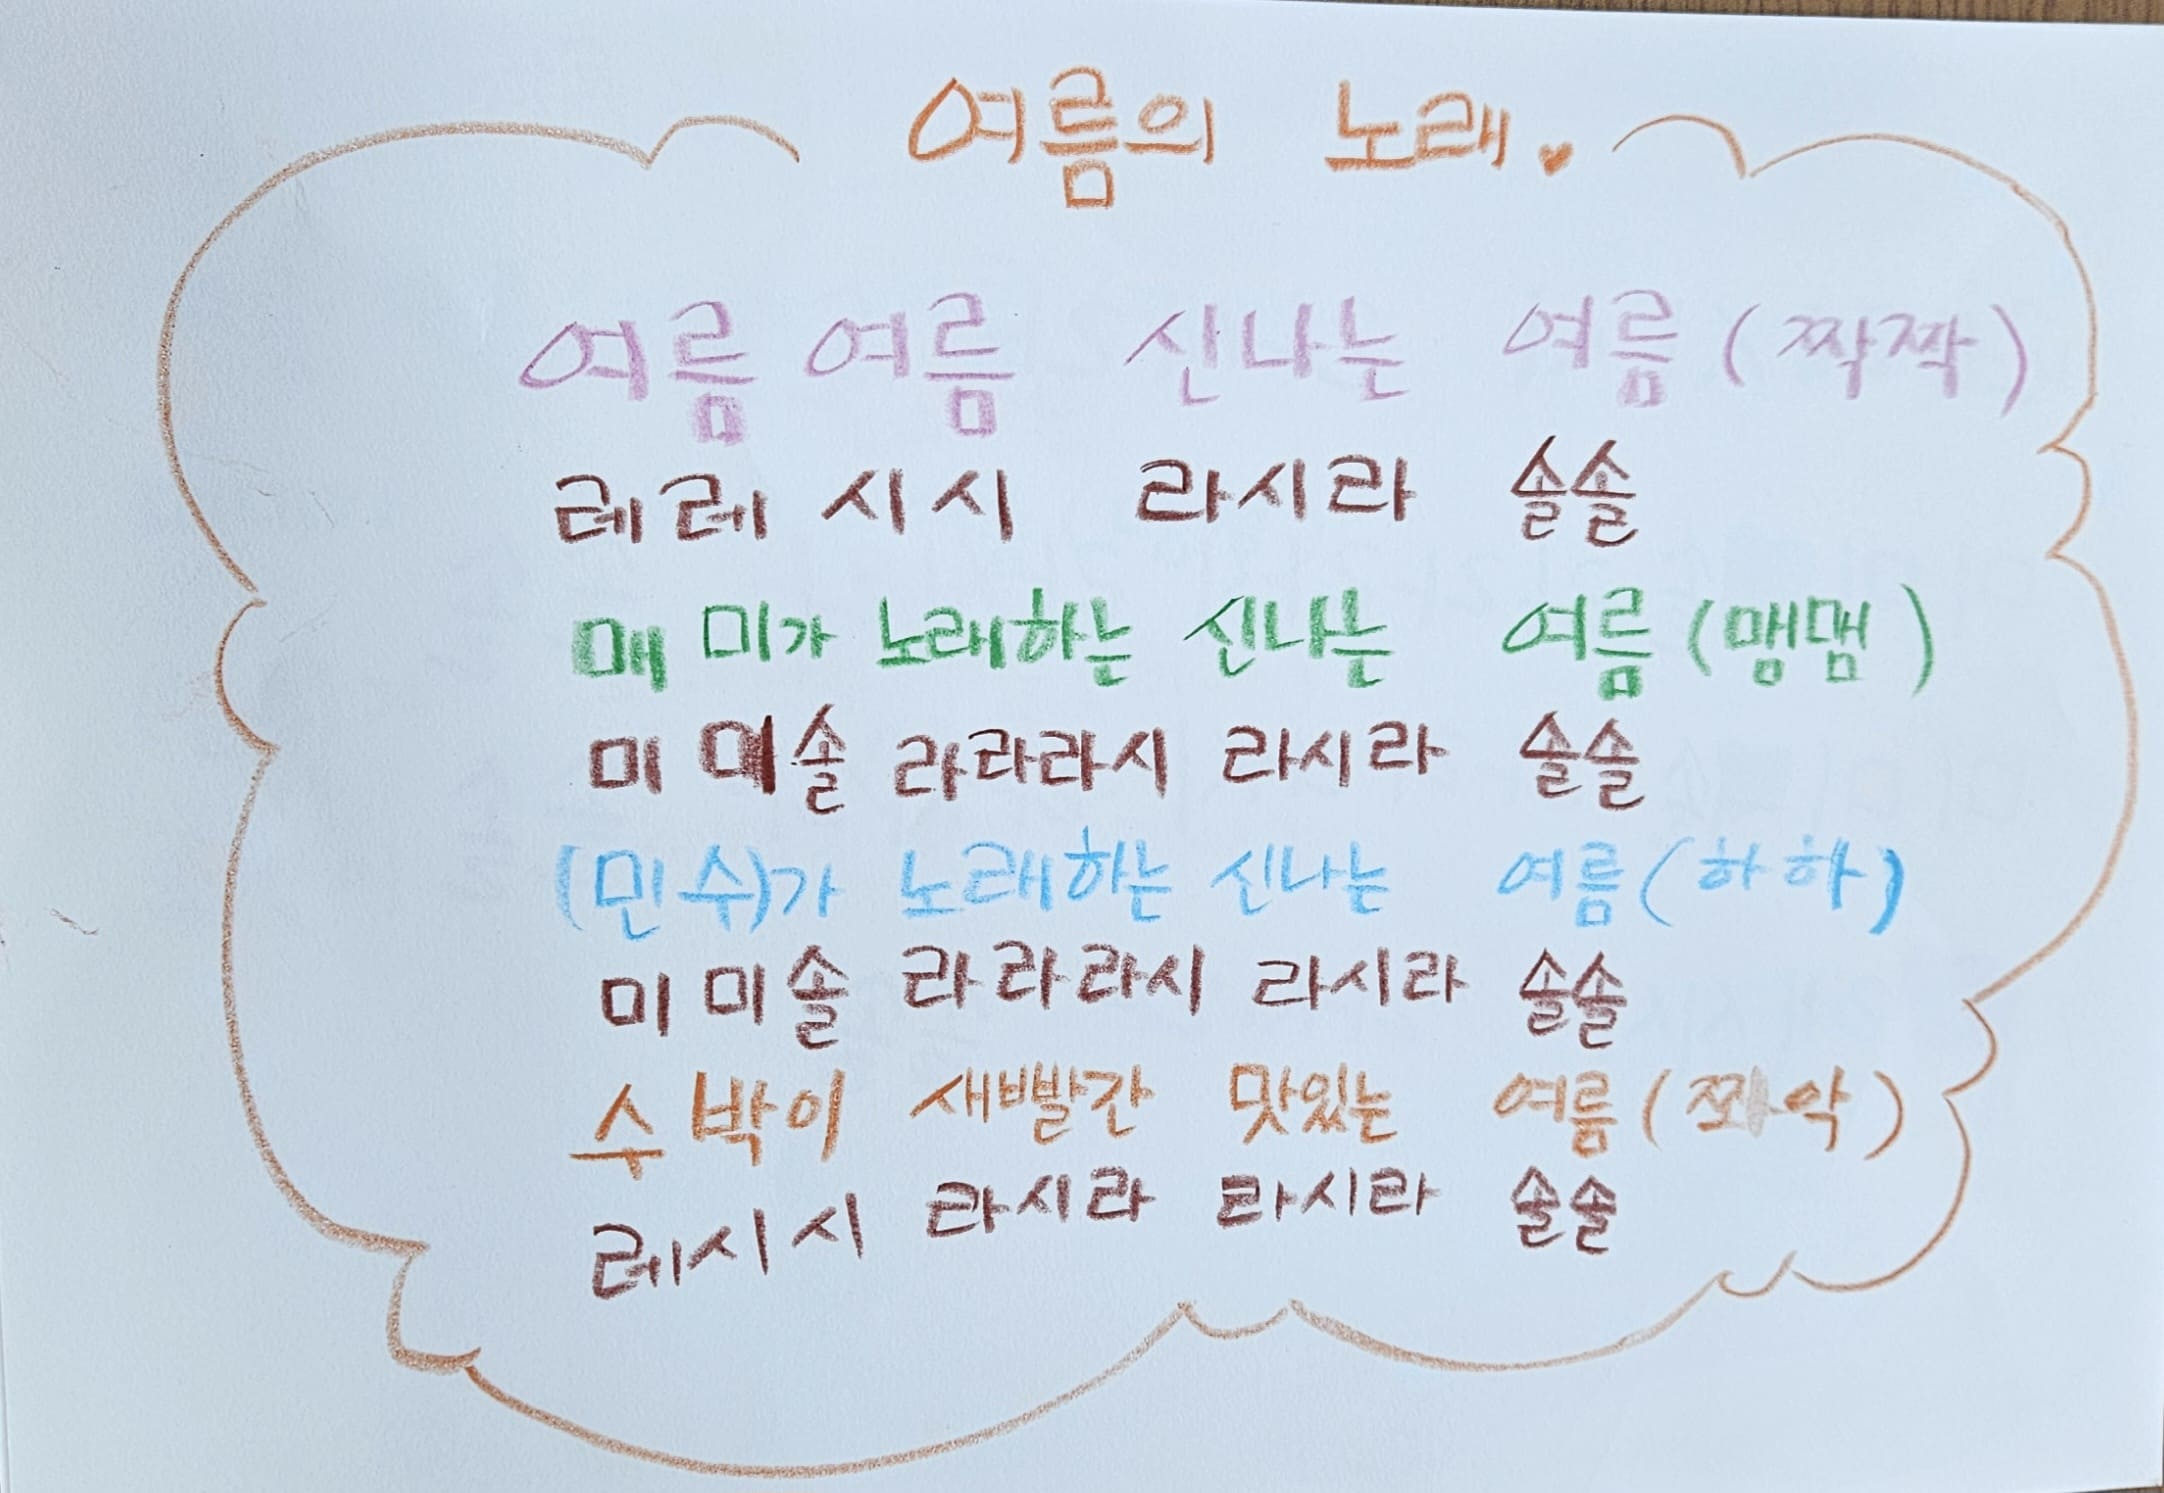 여름의 노래.♥
여름 여름 신나는 여름 (짝짝)
레레 시시 라시라 솔솔
매미가 노래하는 신나는 여름 (맹맴)
미 미솔 라라라시 라시라 솔솔
(민수)가 노래하는 신나는 여름 (하하)
미 미솔 라라라시 라시라 솔솔
수박이 새빨간 맛있는 여름 (쫘악)
레시시 라시라 라시라 솔솔